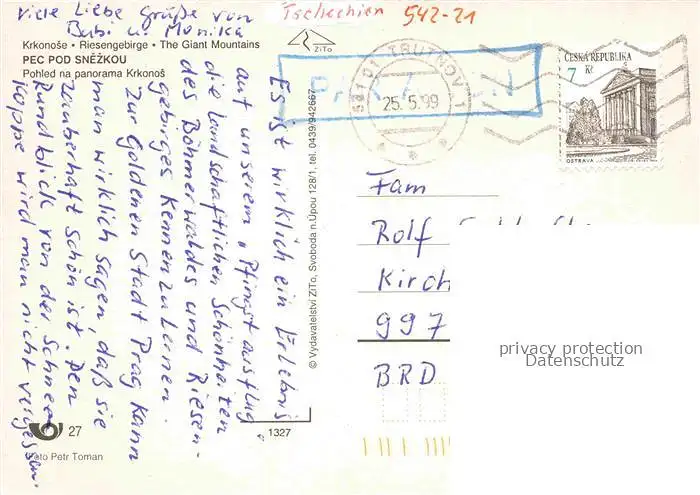 viele Liebe Grüße von
Babi u. Monika
Tschechien 542-21
Krkonoše • Riesengebirge • The Giant Mountains
PEC POD SNĚŽKOU
Pohled na panorama Krkonoš
ZiTo
541 01 TRUTNOV 1
25.5.99
ČESKÁ REPUBLIKA
7 Kč
OSTRAVA
Es ist wirklich ein Erlebnis
auf unserem „Pfingstausflug"
die landschaftlichen Schönheiten
des Böhmerwaldes und Riesen-
gebirges Kennenzulernen.
Zur Goldenen Stadt Prag kann
man wirklich sagen, daß sie
zauberhaft schön ist. Den
Rundblick von der Schnee
Koppe wird man nicht vergessen.
© Vydavatelství ZiTo, Svoboda n.Úpou 128/1, tel. 0439/942667
Fam
Rolf
Kirch
997
BRD
privacy protection
Datenschutz
27
1327
Foto Petr Toman